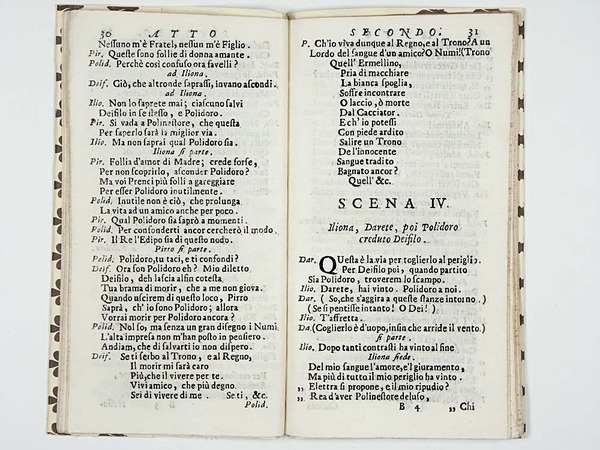 30 ATTO
Nessuno m'è Fratel, nessun m'è Figlio.
Pir. Queste sono follie di donna amante.
Polid. Perchè così confuso ora favelli?
ad Iliona.
Deif. Ciò, che altronde saprassi, invano ascondi.
ad Iliona.
Ilio. Non lo saprete mai; ciascuno salvi
Deifilo in se stesso, e Polidoro.
Pir. Si vada a Polinestore, che questa
Per saperlo sarà la miglior via.
Ilio. Ma non saprai qual Polidoro sia.
Iliona si parte.
Pir. Follia d'amor di Madre; crede forse,
Per non scoprirlo, asconder Polidoro?
Ma voi Prenci più folli a gareggiare
Per esser Polidoro inutilmente.
Polid. Inutile non è ciò, che prolunga
La vita ad un amico anche per poco.
Pir. Qual Polidoro sia saprò a momenti.
Polid. Per confonderti ancor cercherò il modo.
Pir. Il Re l'Edipo sia di questo nodo.
Pirro si parte.
Polid. Polidoro, tu taci, e ti confondi?
Deif. Ora son Polidoro eh? Mio diletto
Deifilo, deh lascia alfin cotesta
Tua brama di morir, che a me non giova.
Quando uscirem di questo loco, Pirro
Saprà, ch'io sono Polidoro; allora
Vorrai morir per Polidoro ancora?
Polid. Nol so; ma senza un gran disegno i Numi
L'alta impresa non m'han posto in pensiero.
Andiam, che di salvarti io non dispero.
Deif. Se ti serbo al Trono, e al Regno,
Il morir mi sarà caro
Più, che il vivere per te.
Vivi amico, che più degno
Sei di vivere di me. Se ti, &c.
Polid.
SECONDO. 31
P. Ch'io viva dunque al Regno, e al Trono? A un
Lordo del sangue d'un amico? O Numi! (Trono
Quell' Ermellino,
Pria di macchiare
La bianca spoglia,
Soffre incontrare
O laccio, ò morte
Dal Cacciator.
E ch' io potessi
Con piede ardito
Salire un Trono
De l'innocente
Sangue tradito
Bagnato ancor?
Quell' &c.
SCENA IV.
Iliona, Darete, poi Polidoro
creduto Deifilo.
Dar. Questa è la via per toglierlo al periglio.
Per Deifilo poi, quando partito
Sia Polidoro, troverem lo scampo.
Ilio. Darete, hai vinto. Polidoro a noi.
Dar. ( So, che s'aggira a queste stanze intorno.)
(Se si pentisse intanto! O Dei!)
Ilio. T'affretta.
Da. (Coglierlo è d'uopo, insin che arride il vento.)
si parte.
Ilio. Dopo tanti contrasti ha vinto al fine
Iliona siede.
Del mio sangue l'amore, e'l giuramento,
Ma più di tutto il mio periglio ha vinto.
„ Elettra si propone, e il mio ripudio?
„ Rea d'aver Polinestore deluso,
B 4 „ Chi